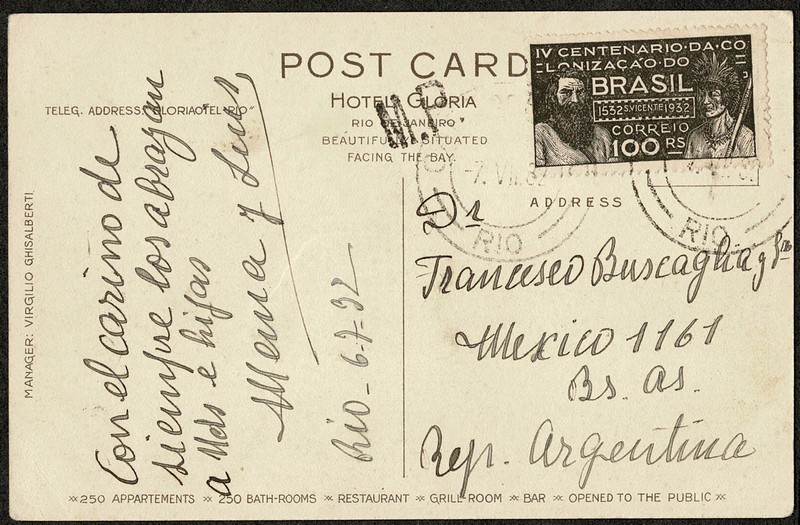 POST CARD
HOTEL GLORIA
RIO DE JANEIRO
BEAUTIFULLY SITUATED
FACING THE BAY.
TELEG. ADDRESS: "GLORIAOTEL-RIO"
M.P
IV CENTENARIO·DA·CO
LONIZAÇÃO·DO
BRASIL
1532 S.VICENTE 1932
CORREIO
100 RS
-7. VII. 32
RIO
RIO
MANAGER: VIRGILIO GHISALBERTI
Con el cariño de
siempre los abrazan
a Uds e hijas
Mena y Luis
Rio - 6-7-32
ADDRESS
Dr
Francesco Buscaglia y Sra
Mexico 1161
Bs. As.
Rep. Argentina
250 APPARTEMENTS 250 BATH-ROOMS RESTAURANT GRILL ROOM BAR OPENED TO THE PUBLIC